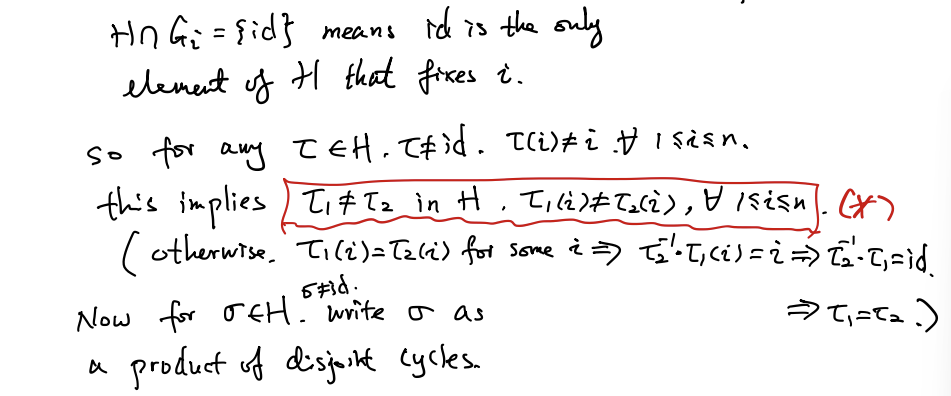 H∩Gᵢ = {id} means id is the only
element of H that fixes i.
so for any τ ∈ H. τ≠id. τ(i)≠i ∀ 1≤i≤n.
this implies τ₁≠τ₂ in H. τ₁(i)≠τ₂(i), ∀ 1≤i≤n. (*)
(otherwise. τ₁(i)=τ₂(i) for some i ⇒ τ₂⁻¹·τ₁(i)=i ⇒ τ₂⁻¹·τ₁=id.
⇒ τ₁=τ₂.)
Now for σ∈H. σ≠id. write σ as
a product of disjoint cycles.